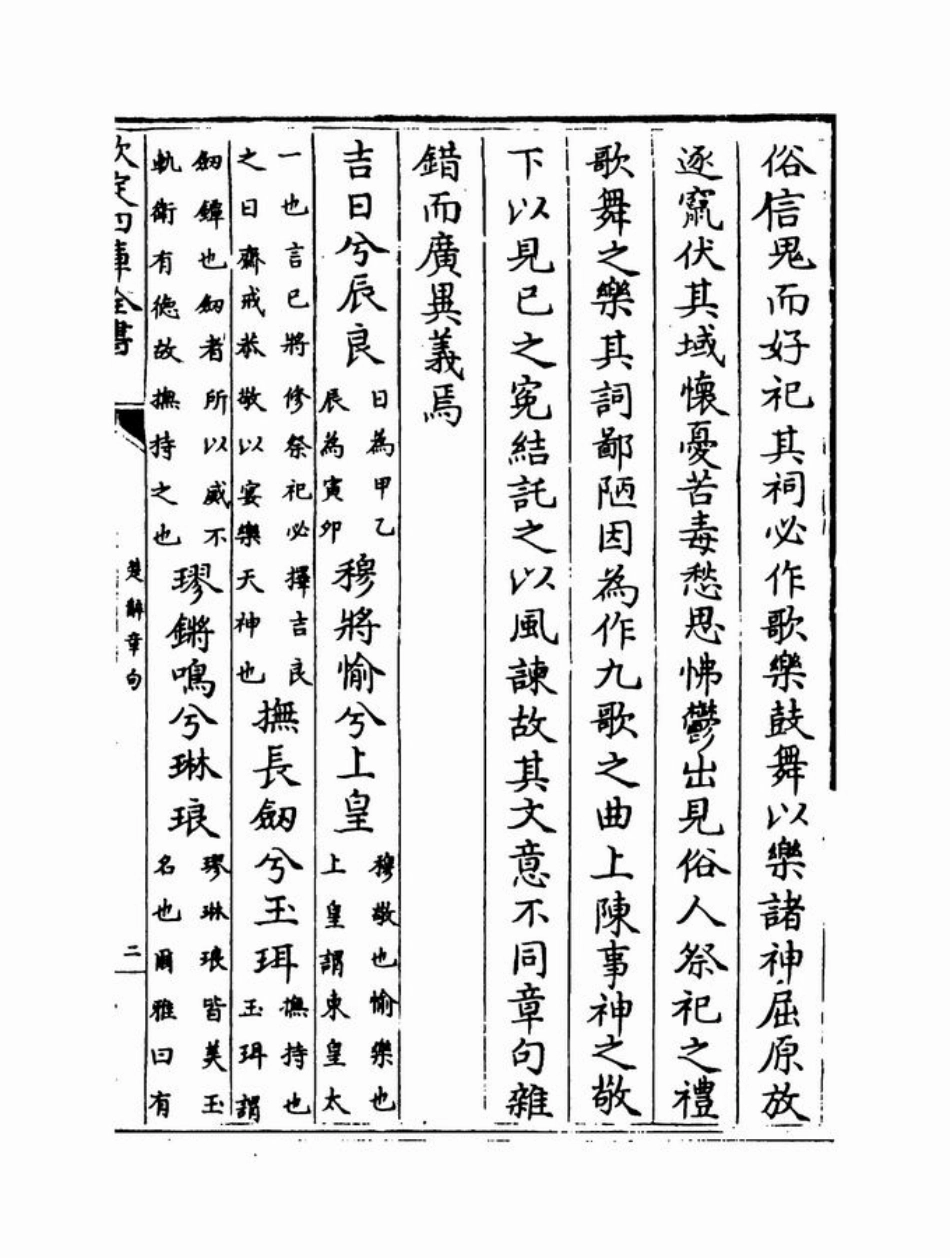 俗信鬼而好祀其祠必作歌樂鼓舞以樂諸神屈原放
逐竄伏其域懷憂苦毒愁思怫鬱出見俗人祭祀之禮
歌舞之樂其詞鄙陋因為作九歌之曲上陳事神之敬
下以見己之寃結託之以風諫故其文意不同章句雜
錯而廣異義焉
吉日兮辰良日為甲乙辰為寅卯穆將愉兮上皇穆敬也愉樂也上皇謂東皇太
一也言己將修祭祀必擇吉良之日齋戒恭敬以宴樂天神也撫長劒兮玉珥撫持也玉珥謂
劒鐔也劒者所以威不軌衛有德故撫持之也璆鏘鳴兮琳琅璆琳琅皆美玉名也爾雅曰有
欽定四庫全書
楚辭章句
二